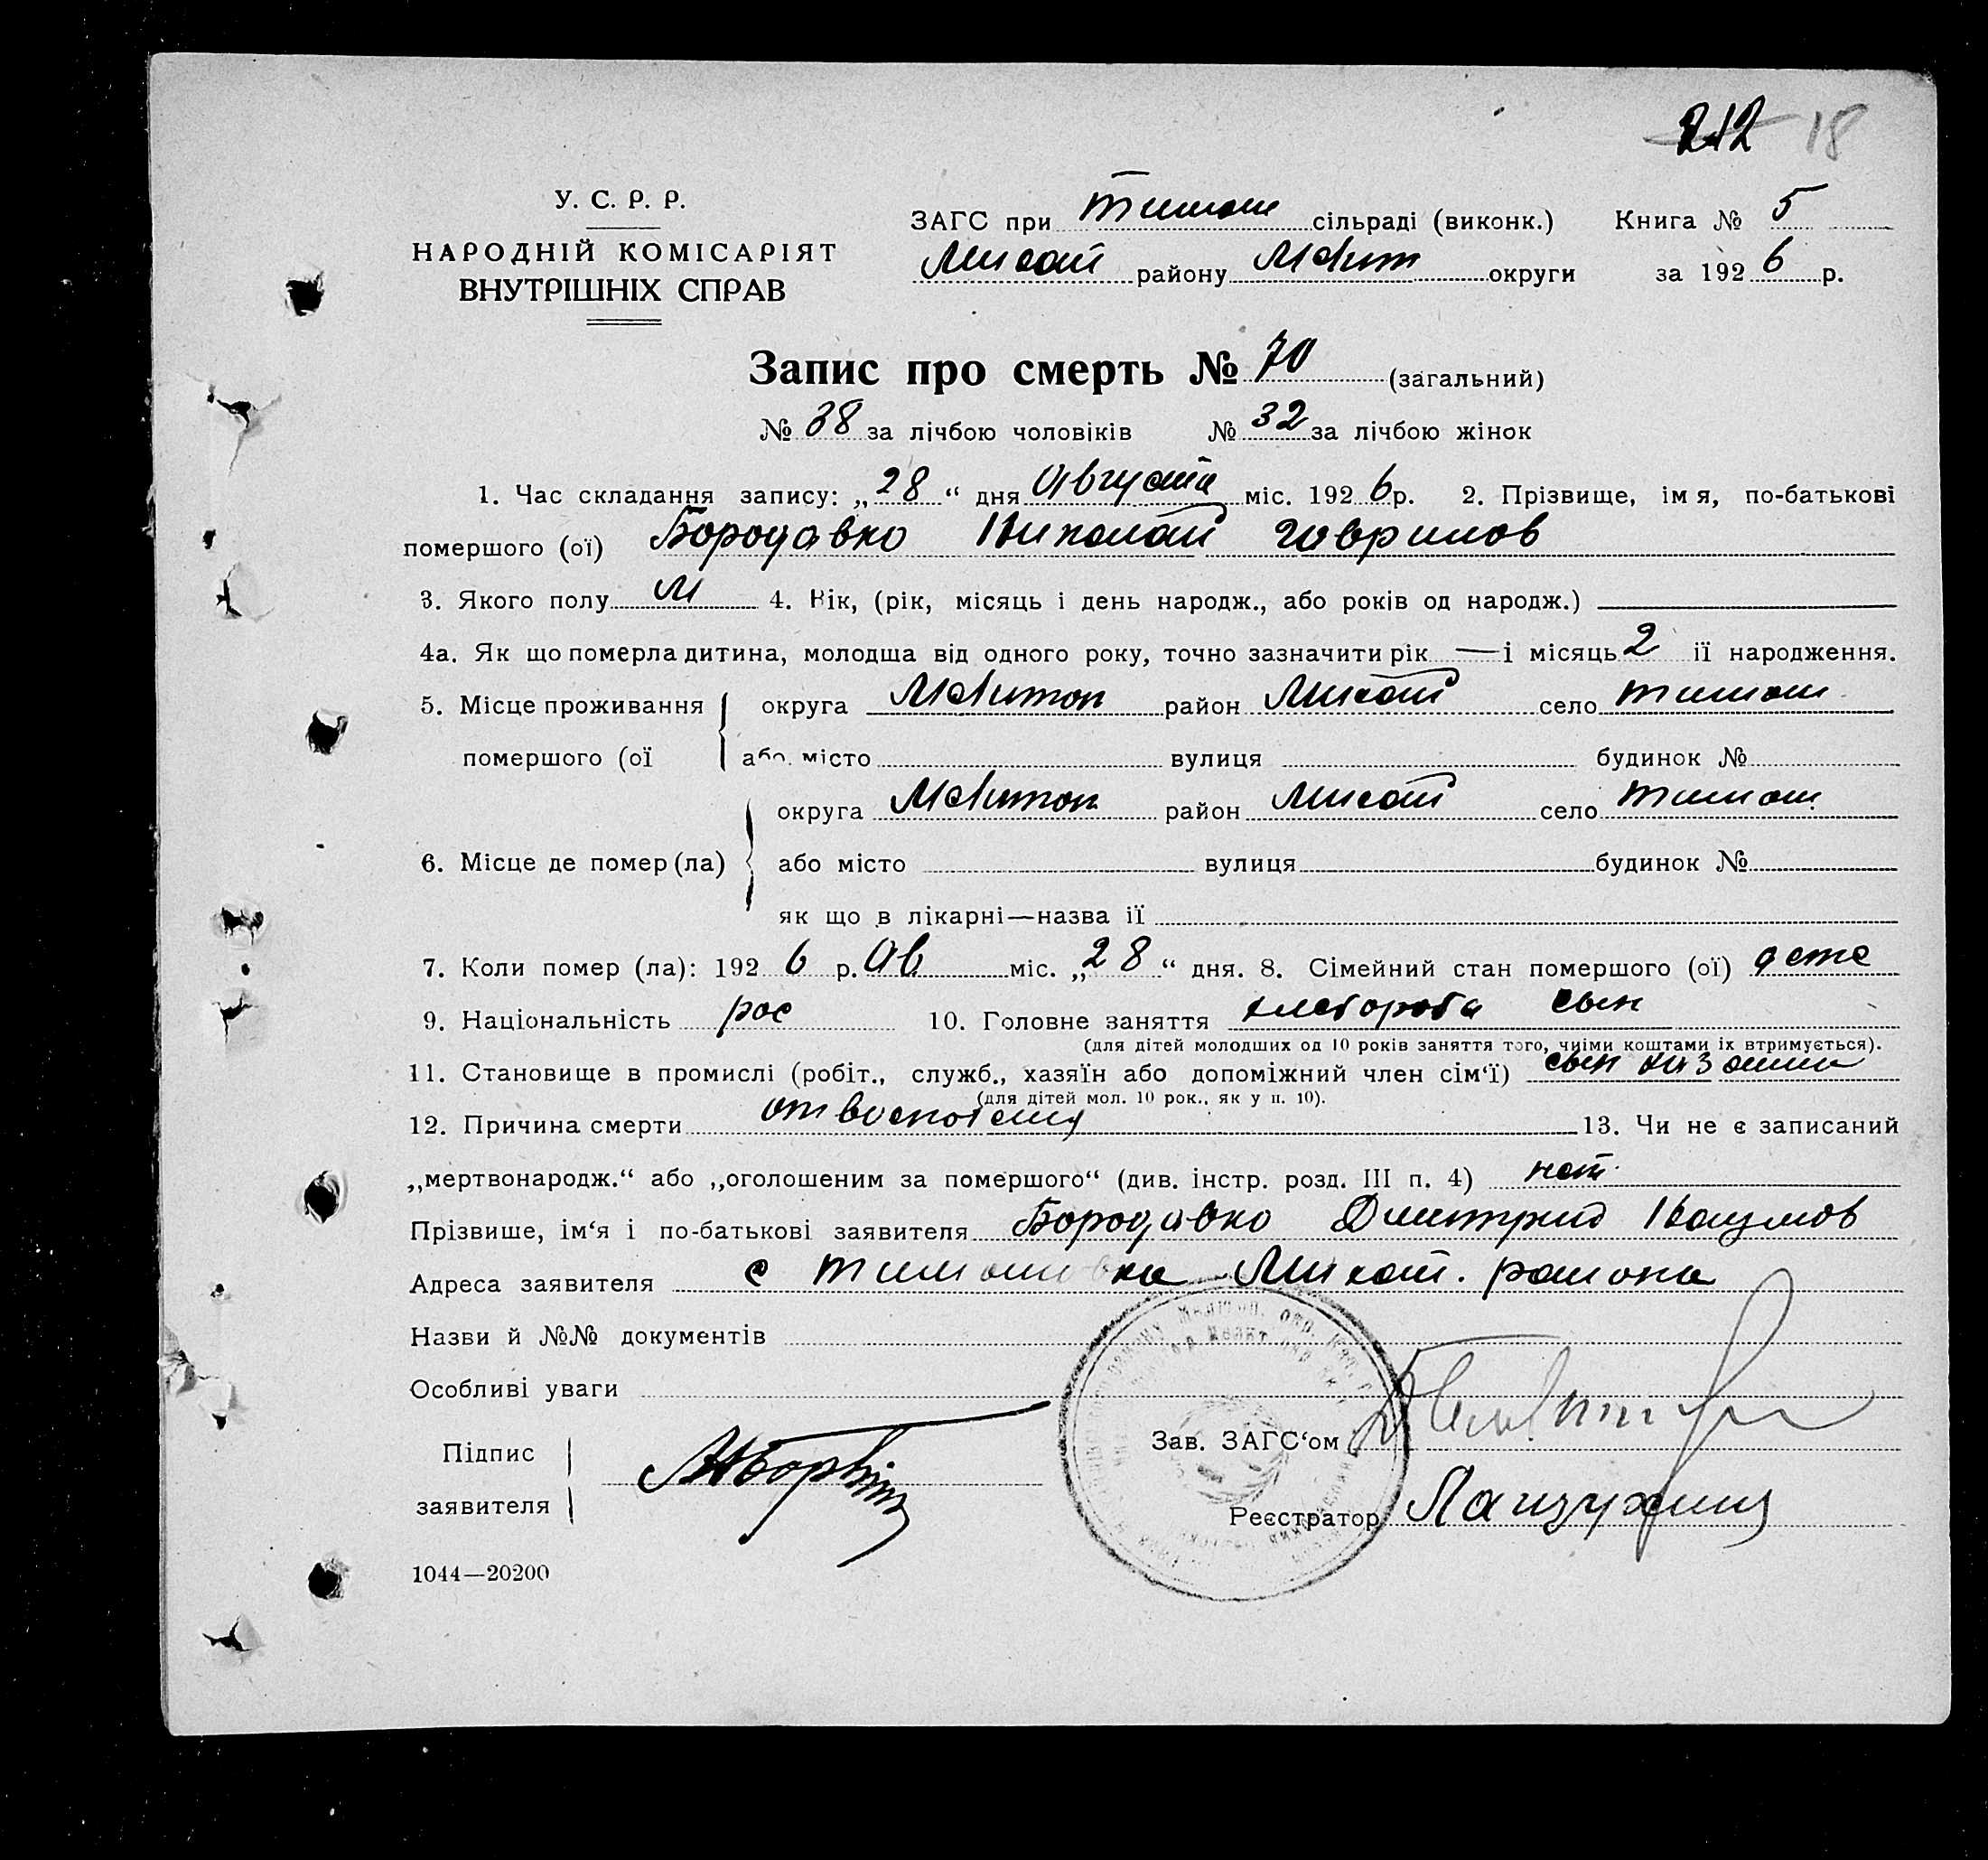 212 18
У. С. Р. Р.
НАРОДНІЙ КОМІСАРІЯТ
ВНУТРІШНІХ СПРАВ
ЗАГС при Тимош сільраді (виконк.) Книга № 5
Михай району Мелит округи за 1926 р.
Запис про смерть № 70 (загальний)
№ 38 за лічбою чоловіків № 32 за лічбою жінок
1. Час складання запису: „28“ дня Августа міс. 1926 р. 2. Прізвище, імя, по-батькові
помершого (ої) Бородавко Николай Гаврилов
3. Якого полу М 4. Вік, (рік, місяць і день народж., або років од народж.) —
4а. Як що померла дитина, молодша від одного року, точно зазначити рік — і місяць 2 її народження.
5. Місце проживання округа Мелитоп район Михай село Тимош
помершого (ої або місто вулиця будинок №
округа Мелитоп район Михай село Тимош
6. Місце де помер (ла) або місто вулиця будинок №
як що в лікарні—назва її
7. Коли помер (ла): 1926 р. Ав міс. „28“ дня. 8. Сімейний стан помершого (ої) дете
9. Національність рос 10. Головне заняття хлебороба сын
(для дітей молодших од 10 років заняття того, чиїми коштами їх втримується).
11. Становище в промислі (робіт., служб., хазяїн або допоміжний член сім‘ї) сын
(для дітей мол. 10 рок., як у п. 10).
12. Причина смерти от 13. Чи не є записаний
„мертвонародж.“ або „оголошеним за помершого“ (див. інстр. розд. III п. 4) нет
Прізвище, ім‘я і по-батькові заявителя Бородавко Дмитрий Наумов
Адреса заявителя с Тимошовка Михай. района
Назви й №№ документів
Особливі уваги
Підпис
Зав. ЗАГС‘ом
заявителя
Реєстратор
1044—20200